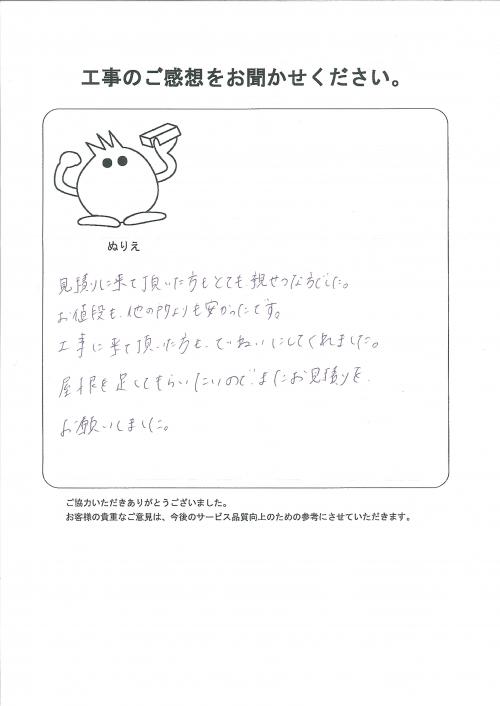 工事のご感想をお聞かせください。
ぬりえ
見積りに来て頂いた方もとても親せつな方でした。
お値段も、他の所よりも安かったです。
工事に来て頂いた方も、ていねいにしてくれました。
屋根を足してもらいたいのでまたお見積りを
お願いしました。
ご協力いただきありがとうございました。
お客様の貴重なご意見は、今後のサービス品質向上のための参考にさせていただきます。